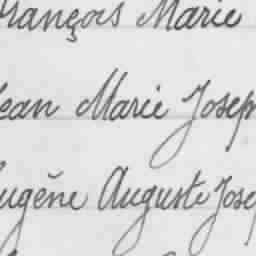 François Marie
Jean Marie Josep
Eugène Auguste Jose